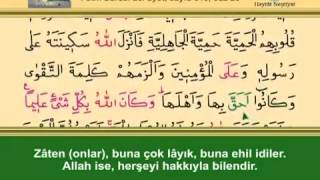 Hayrât Neşriyat
قُلُوبِهِمُ الْحَمِيَّةَ حَمِيَّةَ الْجَاهِلِيَّةِ فَاَنْزَلَ اللّٰهُ سَكِينَتَهُ عَلٰى
رَسُولِهِ وَعَلَى الْمُؤْمِنِينَ وَاَلْزَمَهُمْ كَلِمَةَ التَّقْوٰى
وَكَانُوا اَحَقَّ بِهَا وَاَهْلَهَا وَكَانَ اللّٰهُ بِكُلِّ شَيْءٍ عَلِيمًا
Zâten (onlar), buna çok lâyık, buna ehil idiler.
Allah ise, herşeyi hakkıyla bilendir.